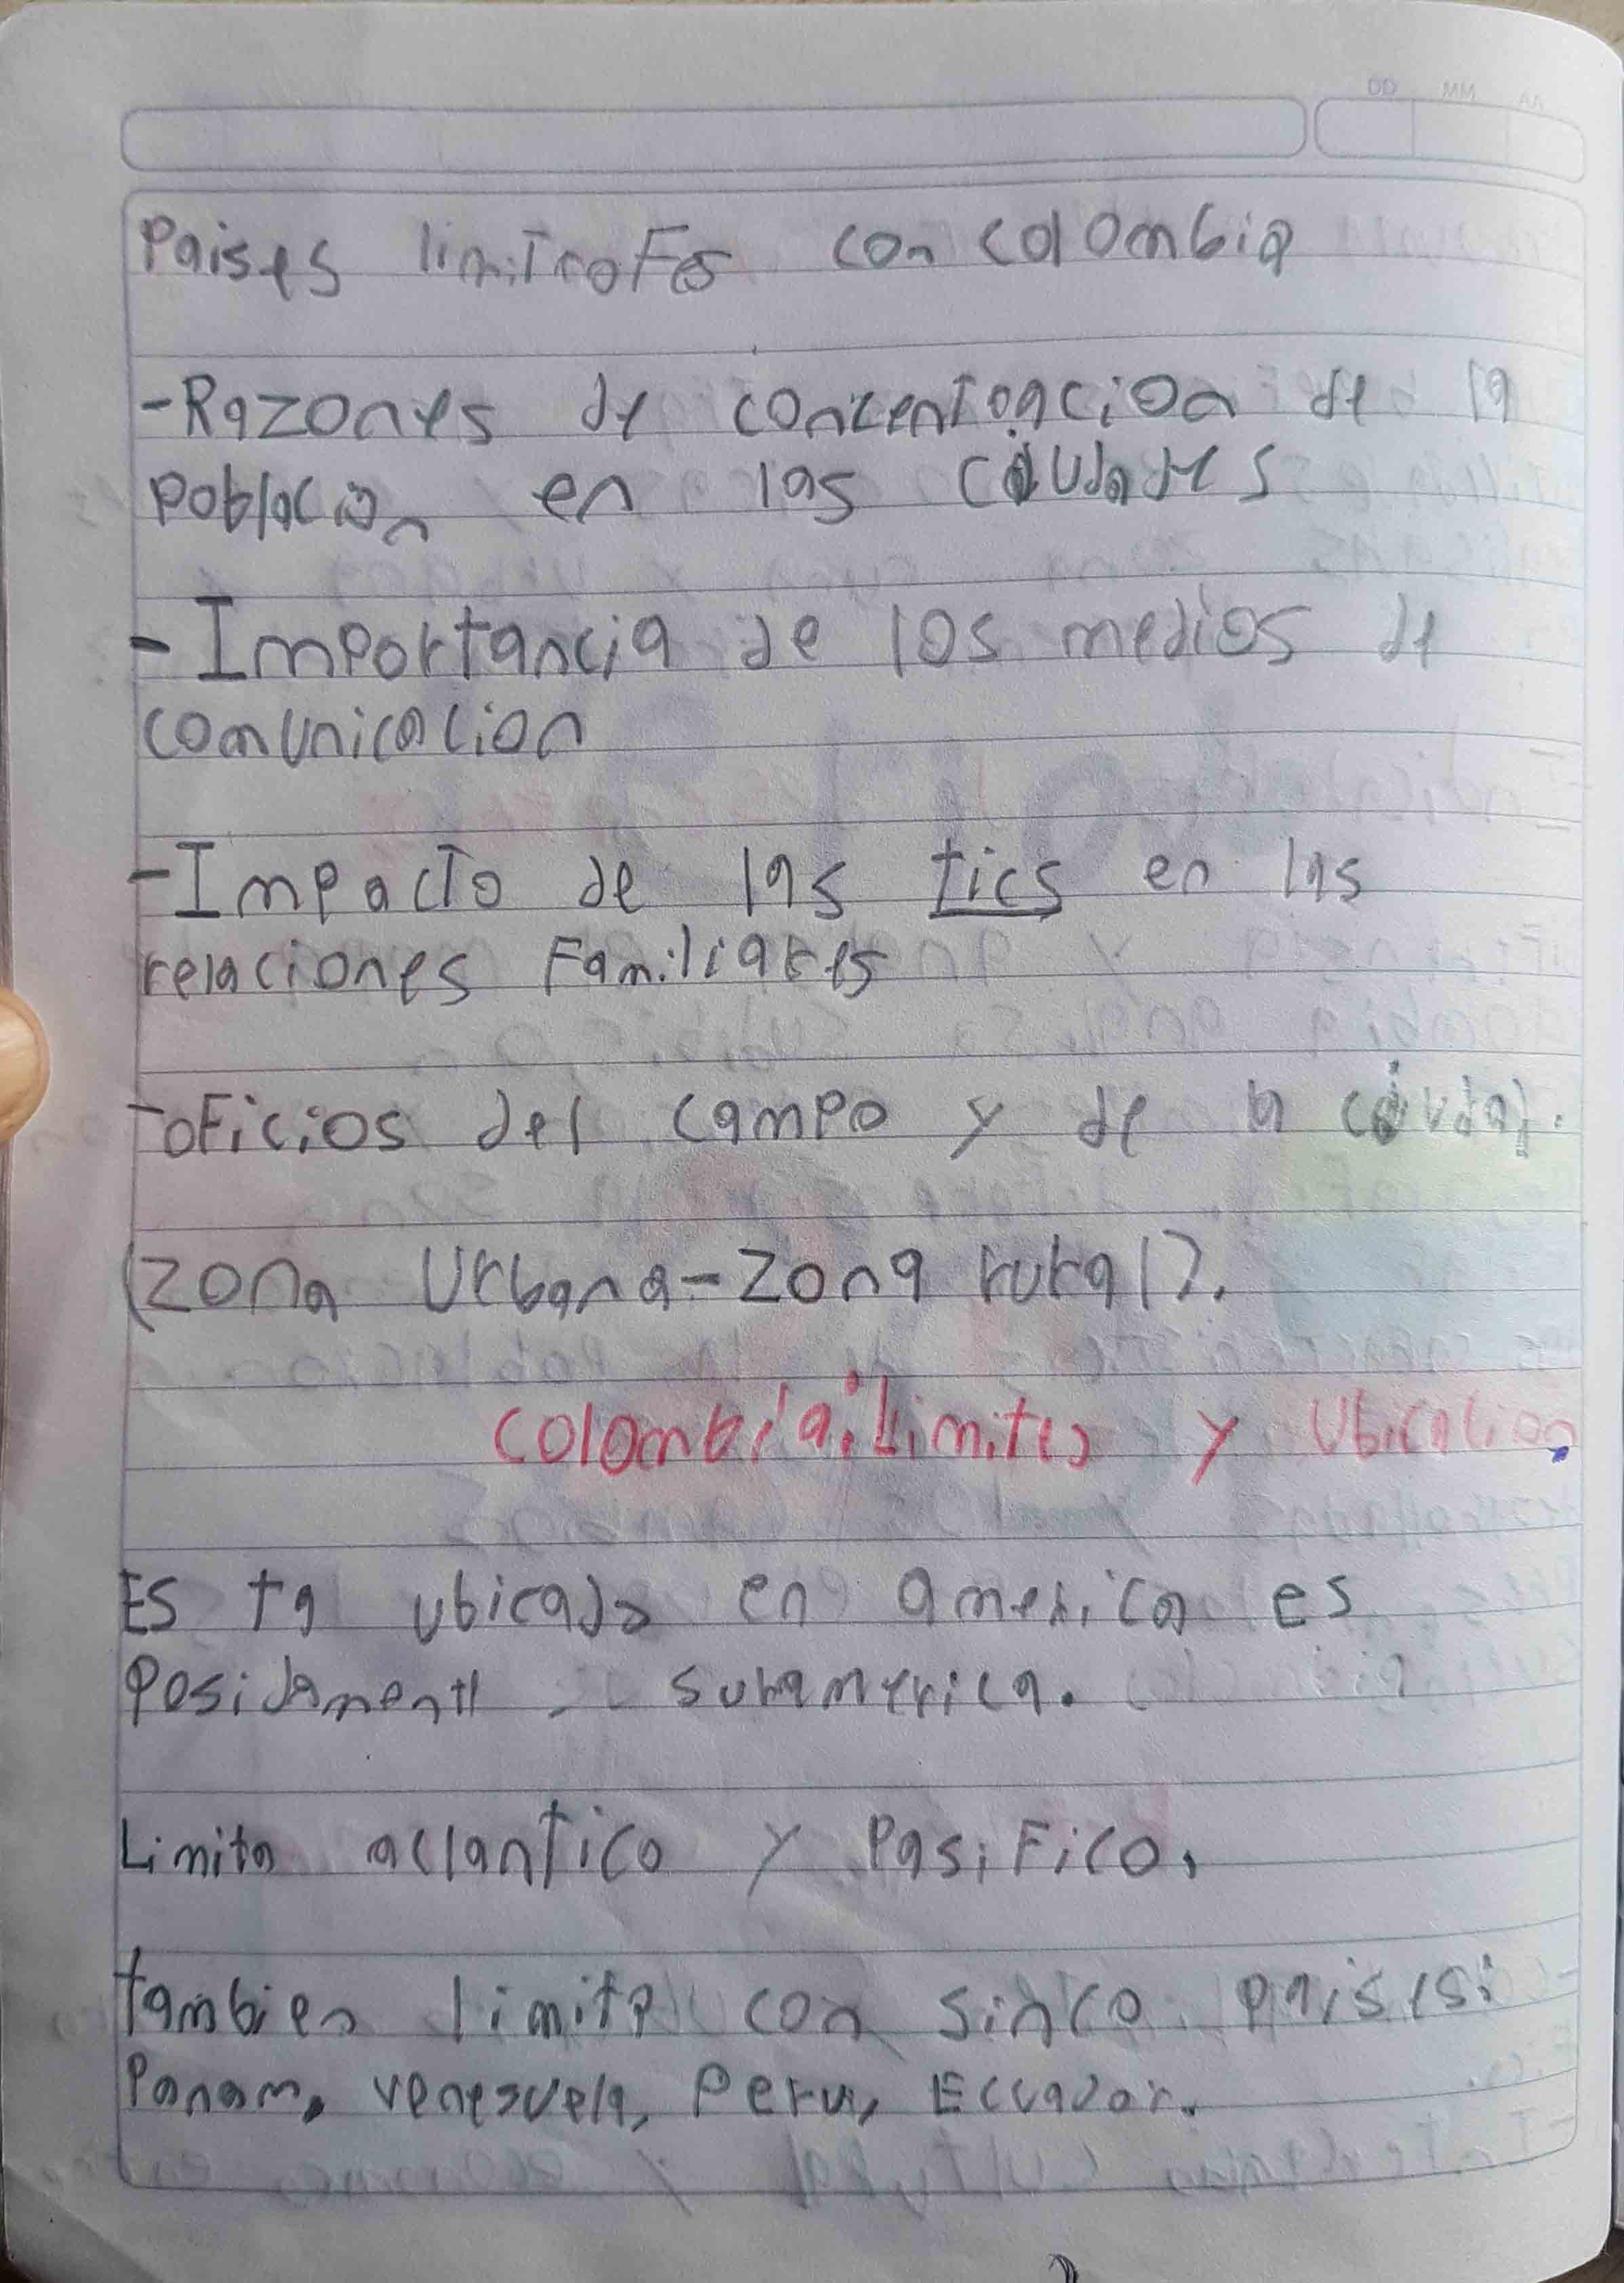 DD MM AA
Paises limitrofes con colombia
-Razones de concentracion de la
poblacion en las ciudades
-Importancia de los medios de
comunicacion
-Impacto de las tics en las
relaciones Familiares
-oficios del campo y de la ciudad.
(zona Urbana-Zona rural).
Colombia: Limites y Ubicacion.
Es ta ubicada en america es
Posidamente suramerica.
Limita aclantico y Pasifico,
tambien limita con sinco paises:
Panam, venesuela, Peru, Ecuador.